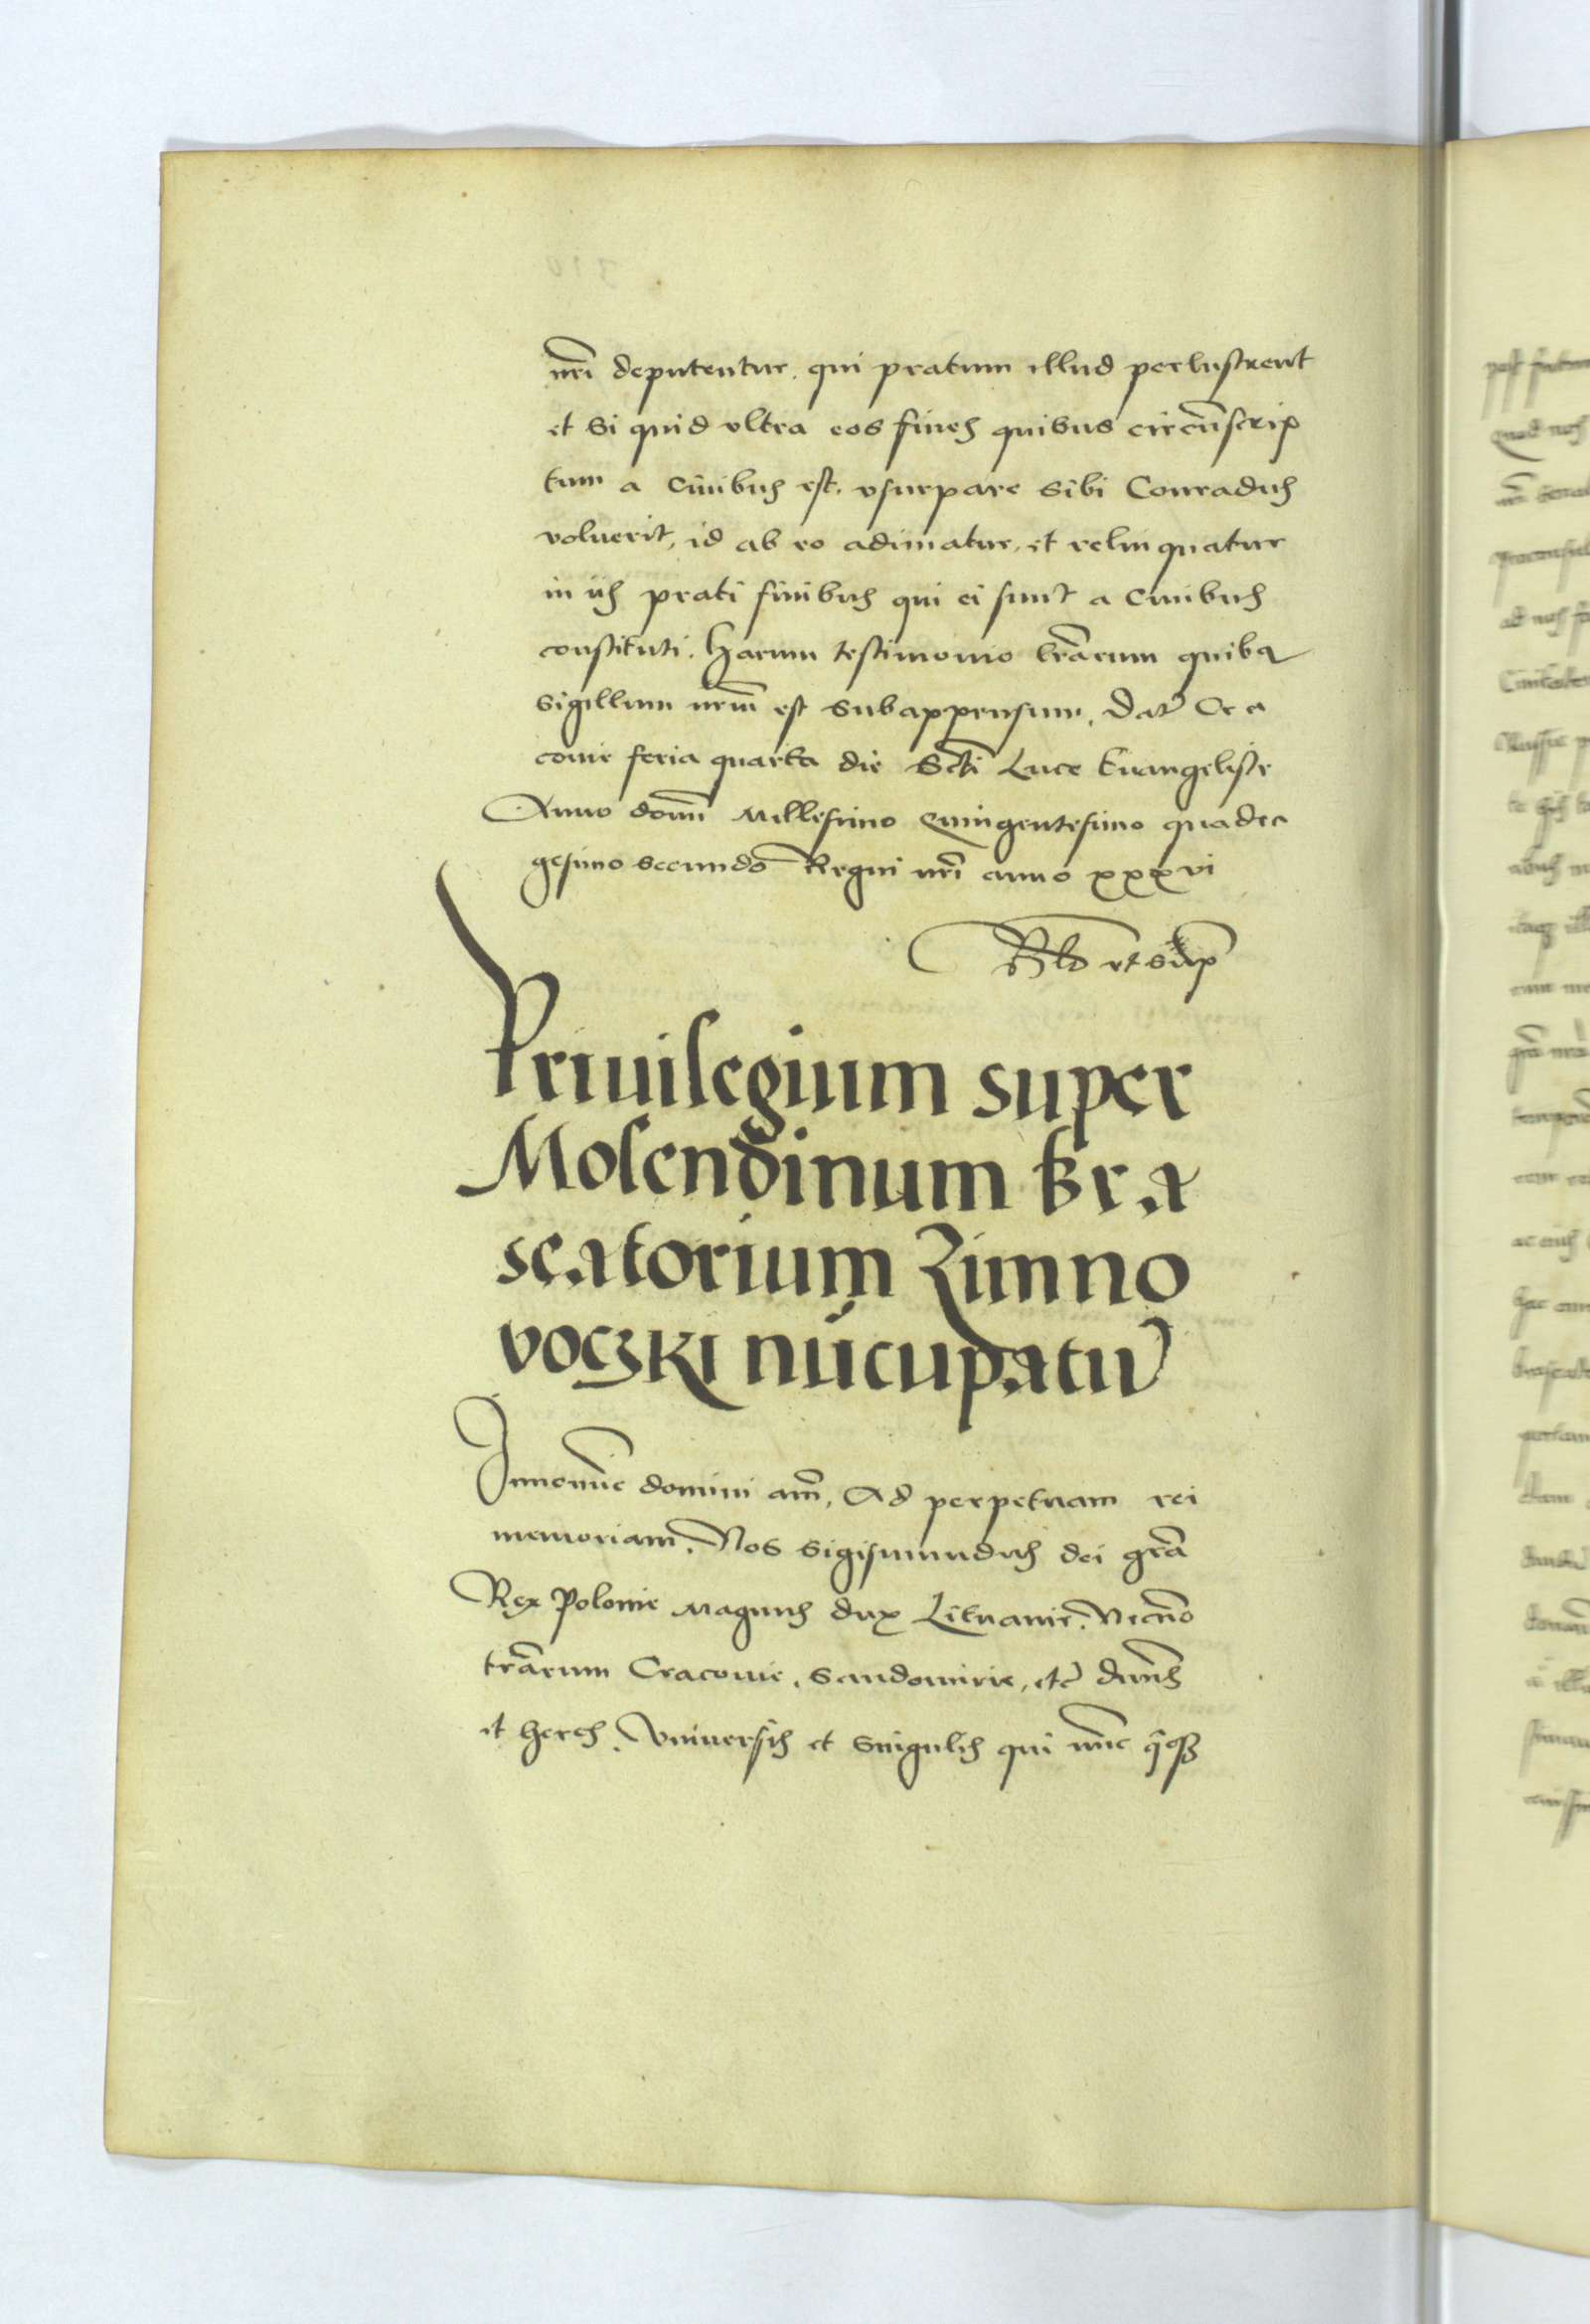 nr̃i deputentur. qui pratum illud perlustrent
et si quid vltra eos fines quibus circũscrip
tum a ciuibus est. vsurpare sibi Conradus
voluerit, id ab eo adimatur, et relinquatur
in iis prati finibus qui ei sunt a ciuibus
constituti. Harum testimonio lrãrum quibꝯ
sigillum nrm̃ est subappensum, Dat̃ Cra
couie feria quarta die Scti Luce Euangeliste
Anno domĩ Millesimo Quingentesimo quadra
gesimo secundo Regni nr̃i anno xxxvi
vt sup
Priuilegium super
Molendinum Bra
seatorium Zimno
voczki nūcupatū
In nomĩe domini am̃, Ad perpetuam rei
memoriam. Nos Sigismundus dei grã
Rex Polonie Magnus dux Lituanie. Necnõ
trãrum Cracouie, Sandomirie, etc̃ dũns
et heres. Vniuersis et singulis qui nũc